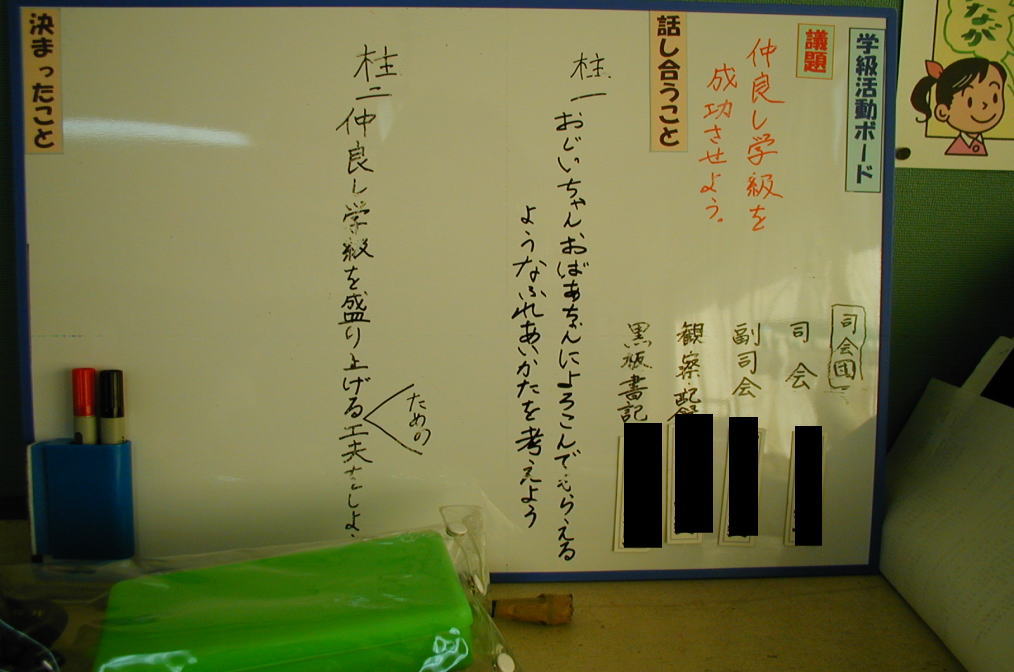 学級活動ボード
議題
仲良し学級を
成功させよう。
司会団
司会
副司会
観察・記録
黒板書記
話し合うこと
柱一 おじいちゃんおばあちゃんによろこんでもらえる
ようなふれあいかたを考えよう
柱二 仲良し学級を盛り上げる工夫をしよ
ための
決まったこと
なが